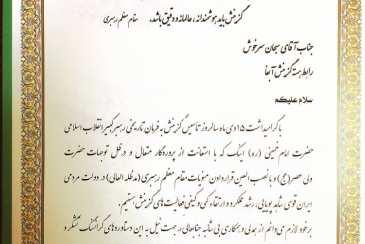 گزینش باید هوشمندانه، عالمانه و دقیق باشد. مقام معظم رهبری
جناب آقای سبحان سرخوش
رابط هسته گزینش آبفا
سلام علیکم
با گرامیداشت ۱۵ دی ماه سالروز تاسیس گزینش به فرمان تاریخی رهبر کبیر انقلاب اسلامی
حضرت امام خمینی (ره) اینک که با استعانت از پروردگار متعال و در ظل توجهات حضرت
ولی عصر (عج) و با نصب العین قرار دادن منویات مقام معظم رهبری (مدظله العالی) در دولت مردمی
ایران قوی شاهد پویایی، رشد عملکرد و ارتقاء کمی و کیفی فعالیت های گزینش هستیم،
بر خود لازم می دانم از همدلی و همکاری بی شائبه جنابعالی، جهت نیل به این دستاوردهای گرانسنگ تشکر و